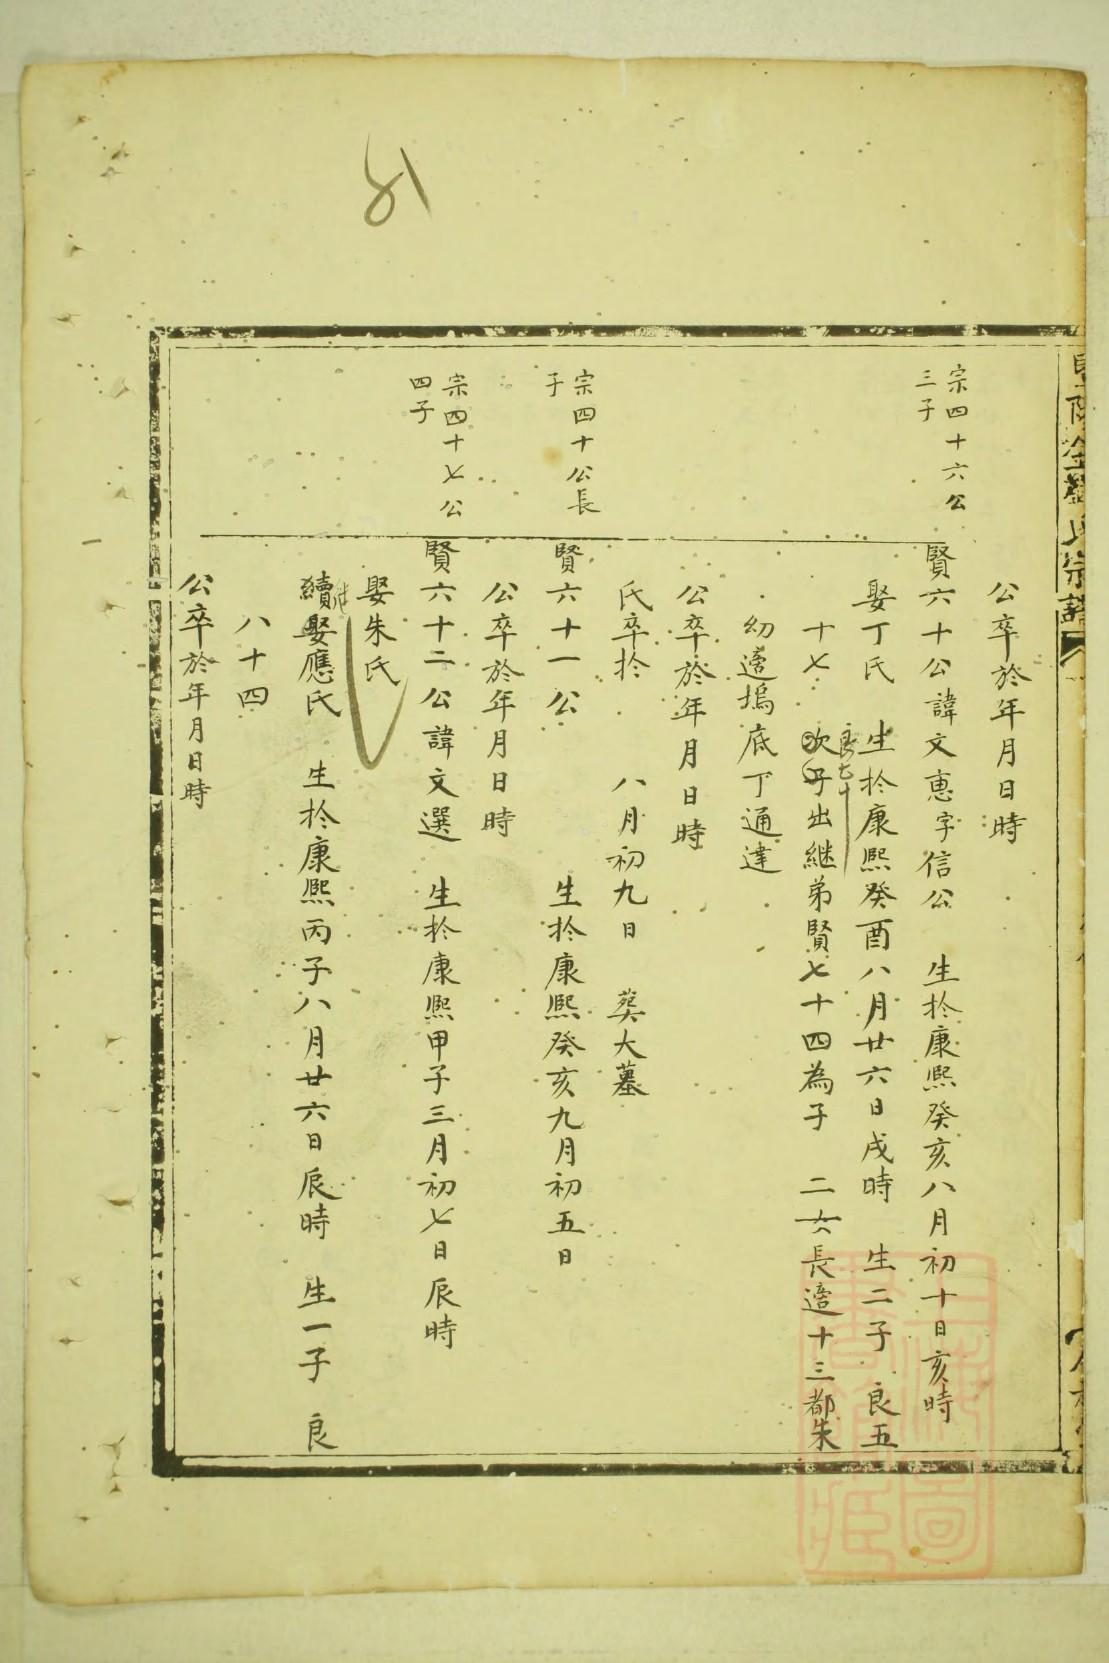 81
公卒於年月日時
宗四十六公
三子
賢六十公諱文惠字信公 生扵康熙癸亥八月初十日亥時
娶丁氏 生扵康熙癸酉八月廿六日戌時 生二子 良五
十七 次子出継弟賢七十四為子 二女長適十三都朱
幼適塢底丁通達
公卒於年月日時
氏卒扵 八月初九日 葬大墓
宗四十公長
子
賢六十一公 生扵康熙癸亥九月初五日
公卒於年月日時
宗四十七公
四子
賢六十二公諱文選 生扵康熙甲子三月初七日辰時
娶朱氏
續娶應氏 生扵康熙丙子八月廿六日辰時 生一子 良
八十四
公卒於年月日時